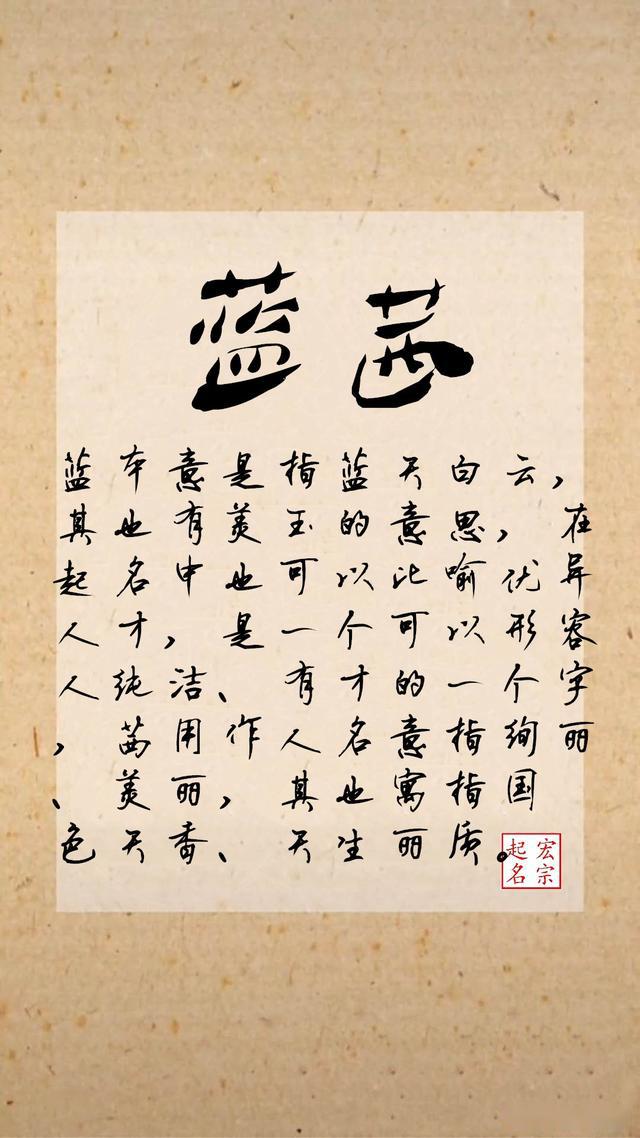 蓝茜
蓝本意是指蓝天白云，
其也有美玉的意思，在
起名中也可以比喻优异
人才，是一个可以形容
人纯洁、有才的一个字
，茜用作人名意指绚丽
、美丽，其也寓指国
色天香、天生丽质。
宏宗
起名